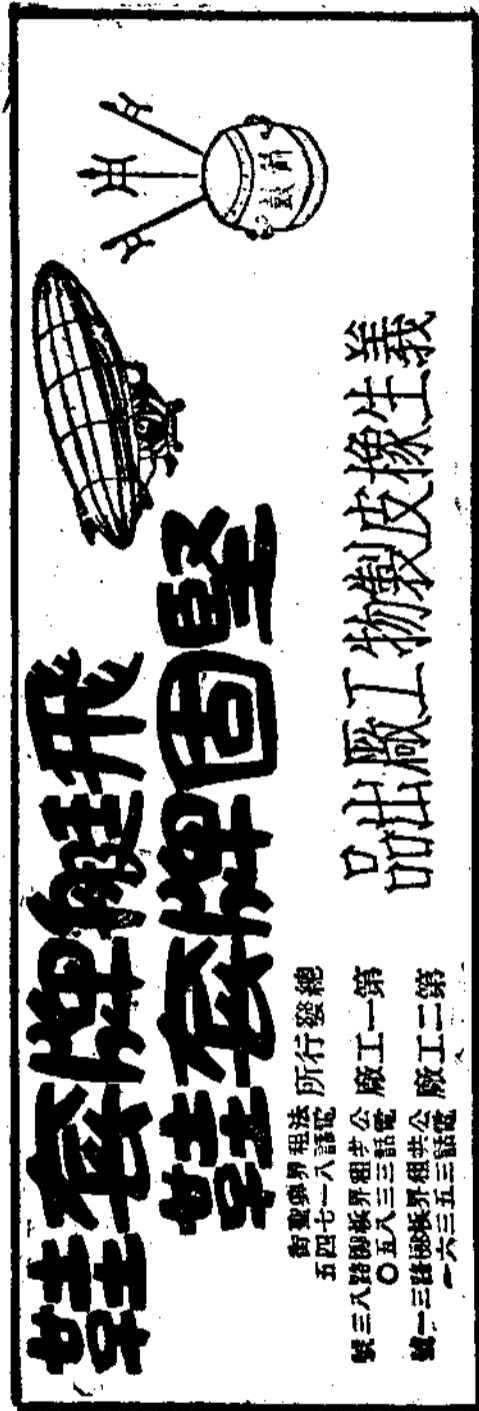 箭鼓
飛艇牌套鞋
堅固牌套鞋
義生橡皮製物工廠出品
總發行所
法租界興聖街
電話八一七四五
第一工廠
公共租界檳榔路三八號
電話三三八五〇
第二工廠
公共租界檳榔路三一號
電話三五三六一